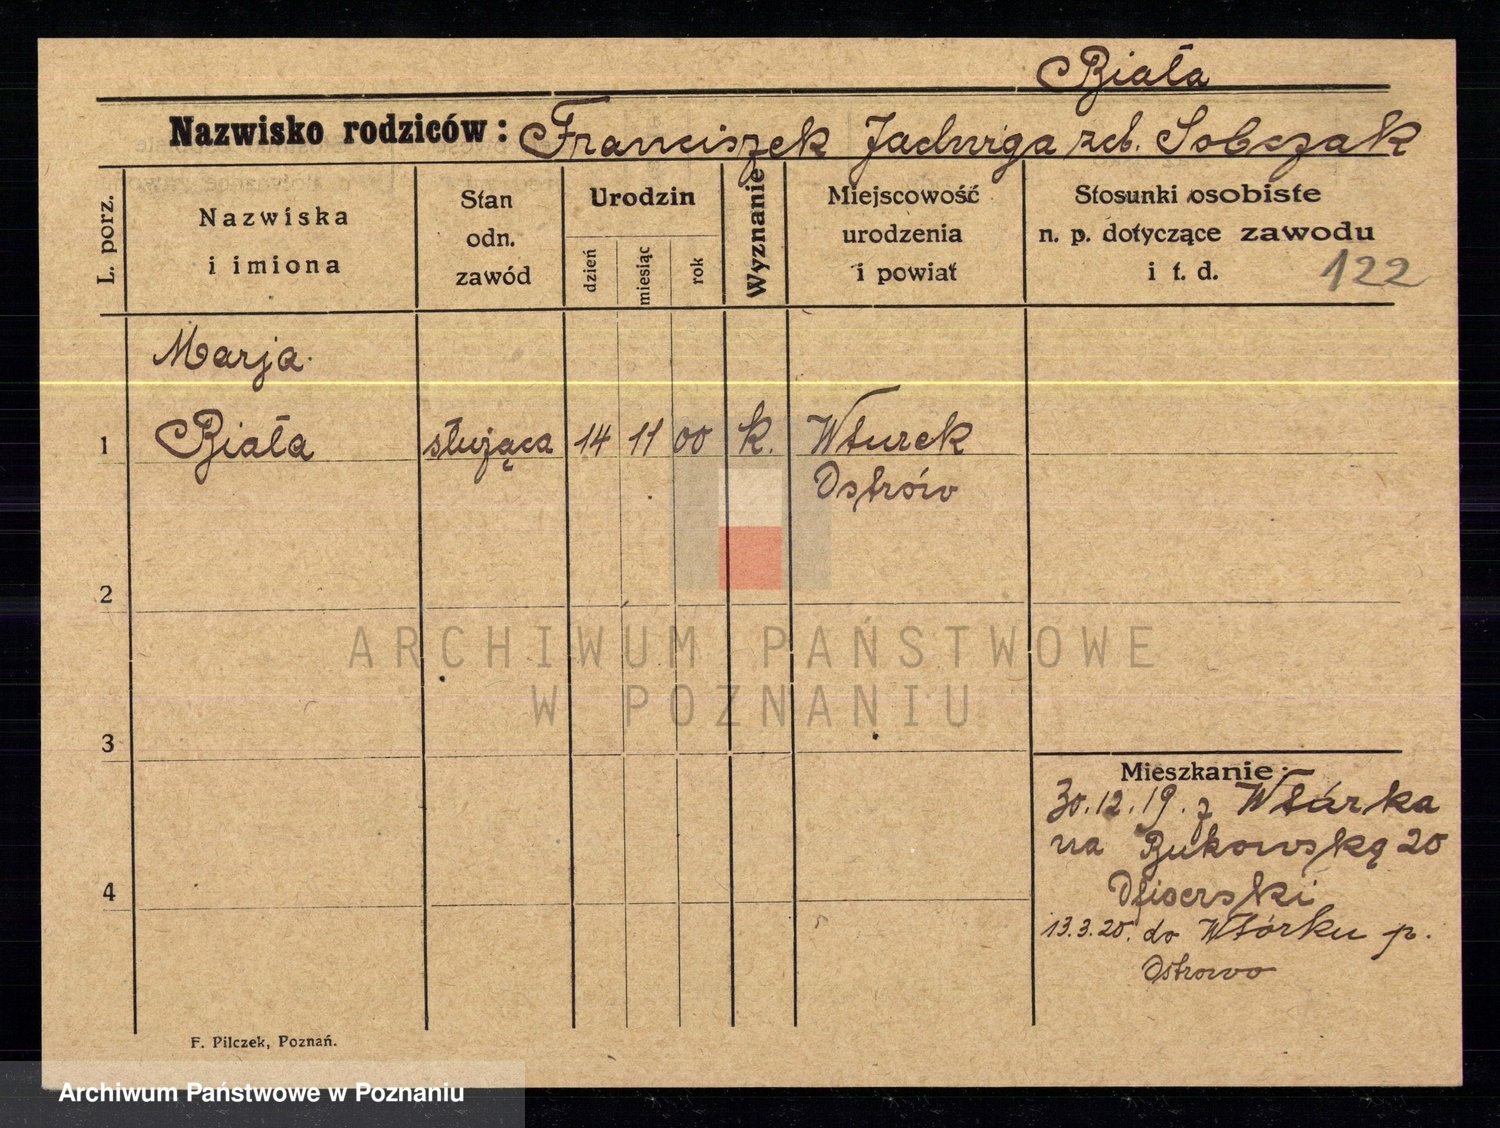 Biała
Nazwisko rodziców: Franciszek Jadwiga zd. Sobczak
L. porz.
Nazwiska
i imiona
Stan
odn.
zawód
Urodzin
dzień
miesiąc
rok
Wyznanie
Miejscowość
urodzenia
i powiat
Stosunki osobiste
n. p. dotyczące zawodu
i t. d.
122
Marja
1 Biała służąca 14 11 00 k. Wturek
Ostrów
2
ARCHIWUM PAŃSTWOWE
W POZNANIU
3
Mieszkanie:
30.12.19. z Wtórka
na Bukowską 20
13.3.20. do Wtórku p.
Ostrowo
4
F. Pilczek, Poznań.
Archiwum Państwowe w Poznaniu